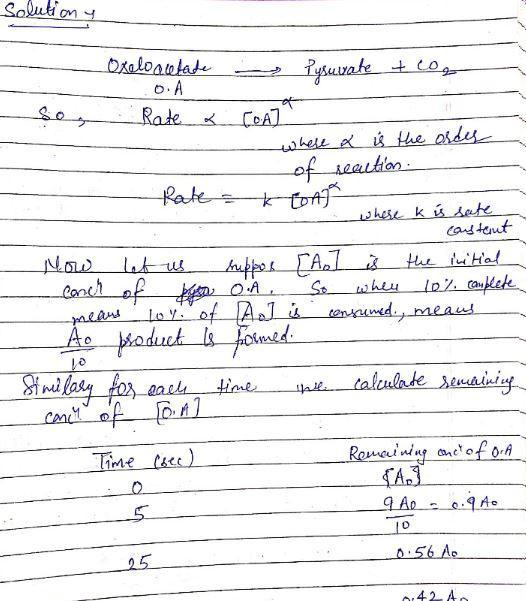 Solution →
Oxaloacetate ⟶ Pyruvate + CO2
O.A
So, Rate ∝ [OA]^α
where α is the order
of reaction.
Rate = k [OA]^α
where k is rate
constent
Now let us suppos [A0] is the initial
conc'n of O.A. So when 10% complete
means 10% of [A0] is consumed, means
A0/10 product is formed.
Similary for each time we calculate remaining
conc'n of [O.A]
Time (sec) Remaining conc'n of O.A
0 [A0]
5 9A0/10 = 0.9 A0
25 0.56 A0
0.42 A0